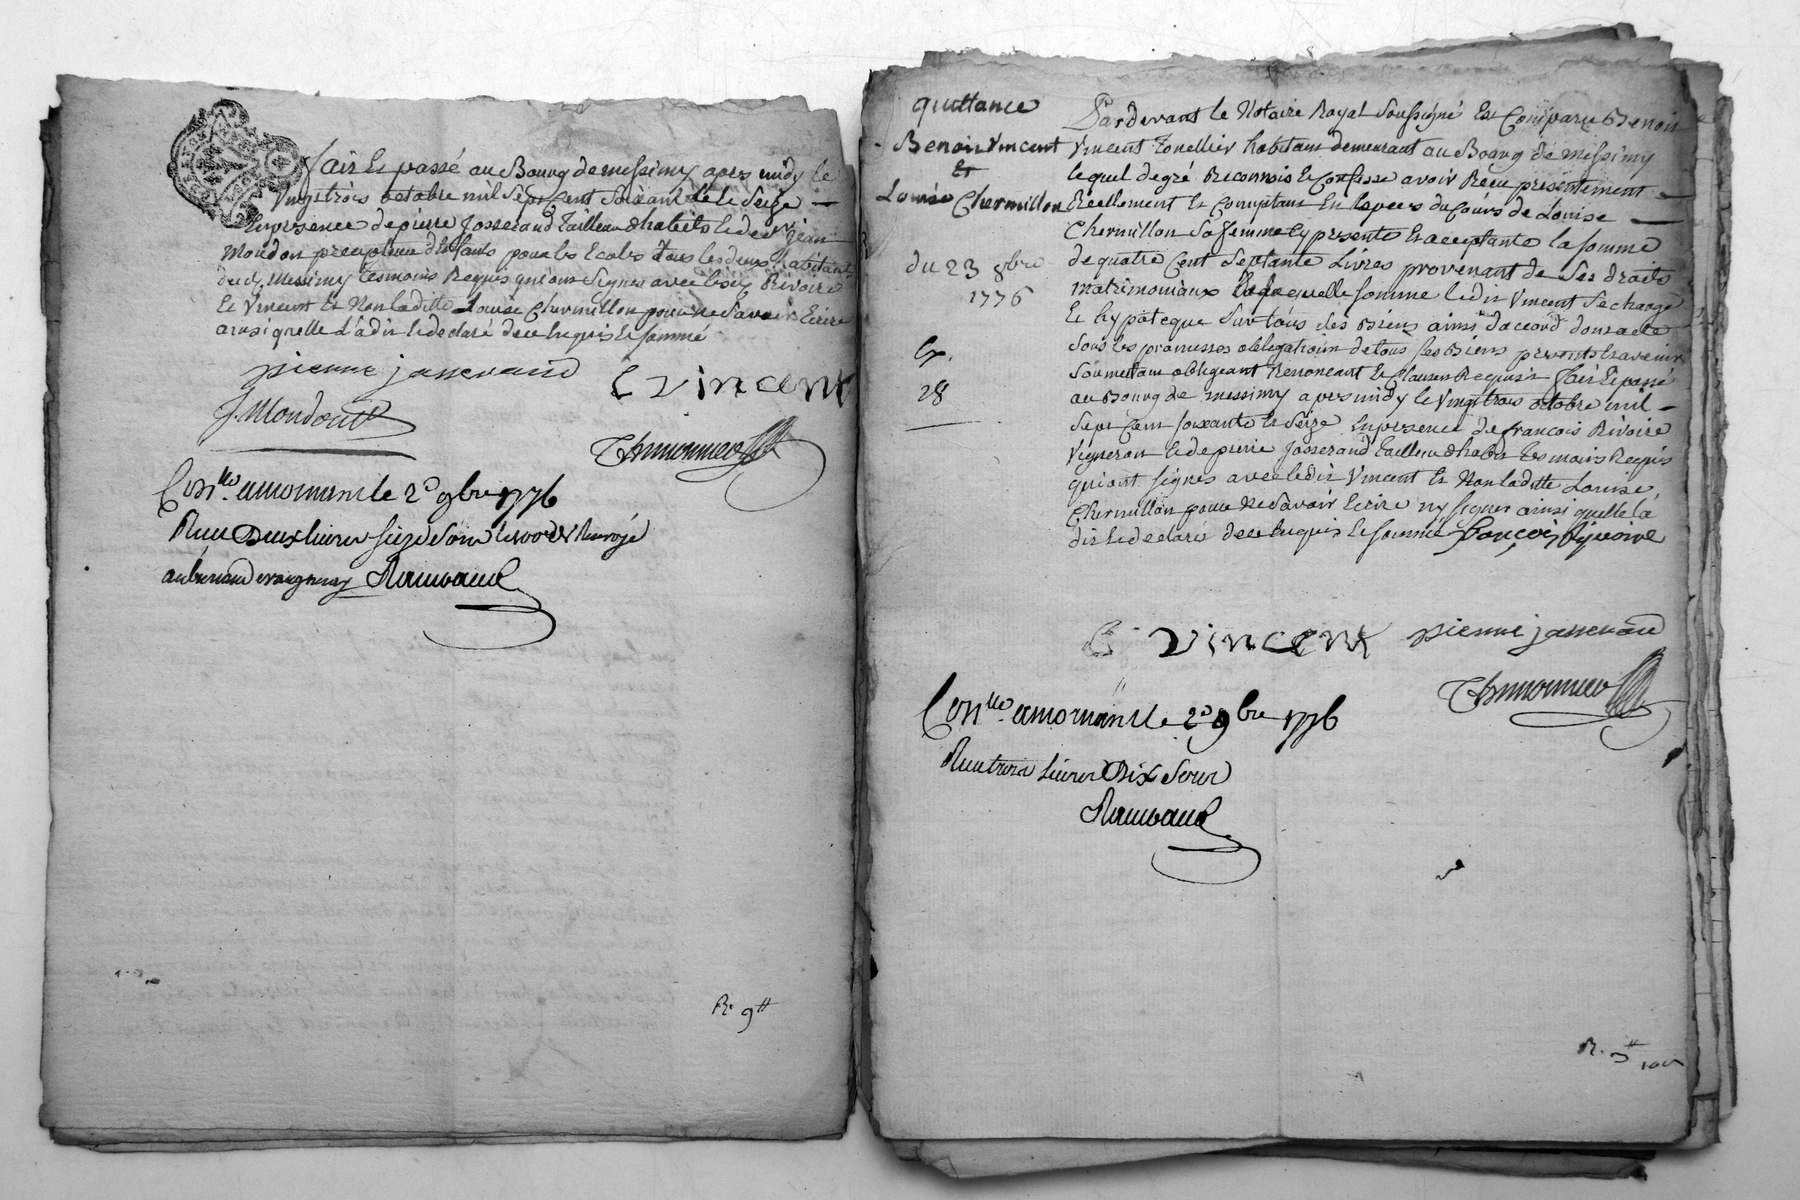 fait et passé au Bourg de messimy apres midy le
Vingt trois octobre mil Sept Cent Soixante et Seize
En presence de pierre Josserand Tailleur d'habits et de sr jean
Mondon precepteur d'Enfants pour les Ecoles tous les deux habitant
dudt Messimy Tesmoins Requis qui ont Signes avec lesdt Rivoire
Et Vincent Et Non laditte Louise Chermillon pour ne Savoir Ecrire
ainsi quelle L'a dit et declaré de ce Enquis et Sommé
pierre josserand
B vincent
J. Mondon
Conlle a mornant le 2e 9bre 1776
Receu Deux livres seize Sous
R. 9tt
quittance
Benoit Vincent
Et
Louise Chermillon
du 23 8bre
1776
Ex.
28
Pardevant le Notaire Royal Soussigné Est Comparu Benoit
Vincent Tonellier habitant demeurant au Bourg de Messimy
lequel de gré Reconnois et Confesse avoir Receu presentement
Reellement Et Comptant En Especes du Cours de Louise
Chermillon Sa femme Cy presente Et acceptante la Somme
de quatre Cent Septante Livres provenant de Ses droits
matrimoniaux laquelle Somme ledit Vincent Se charge
Et hypoteque Sur tous Ses Biens ainsi d'accord dont acte
Sous les promesses obligations de tous Ses Biens presents Et avenir
Soumettant obligeant Renonceant Et Clauses Requises fait Et passé
au Bourg de messimy apres midy le Vingt trois octobre mil
Sept Cent Soixante Et Seize En presence de francois Rivoire
Vigneron Et de pierre Josserand Tailleur d'habits Tesmoins Requis
qui ont Signes avec ledit Vincent Et Non laditte Louise
Chermillon pour ne Savoir Ecrire ny Signer ainsi quelle la
dit Et declaré de ce Enquis Et Sommé françois Riyvoire
B vincent pierre josserand
Conlle a mornant le 2e 9bre 1776
Receu trois Livres Dix Sous
R. 3tt 10s